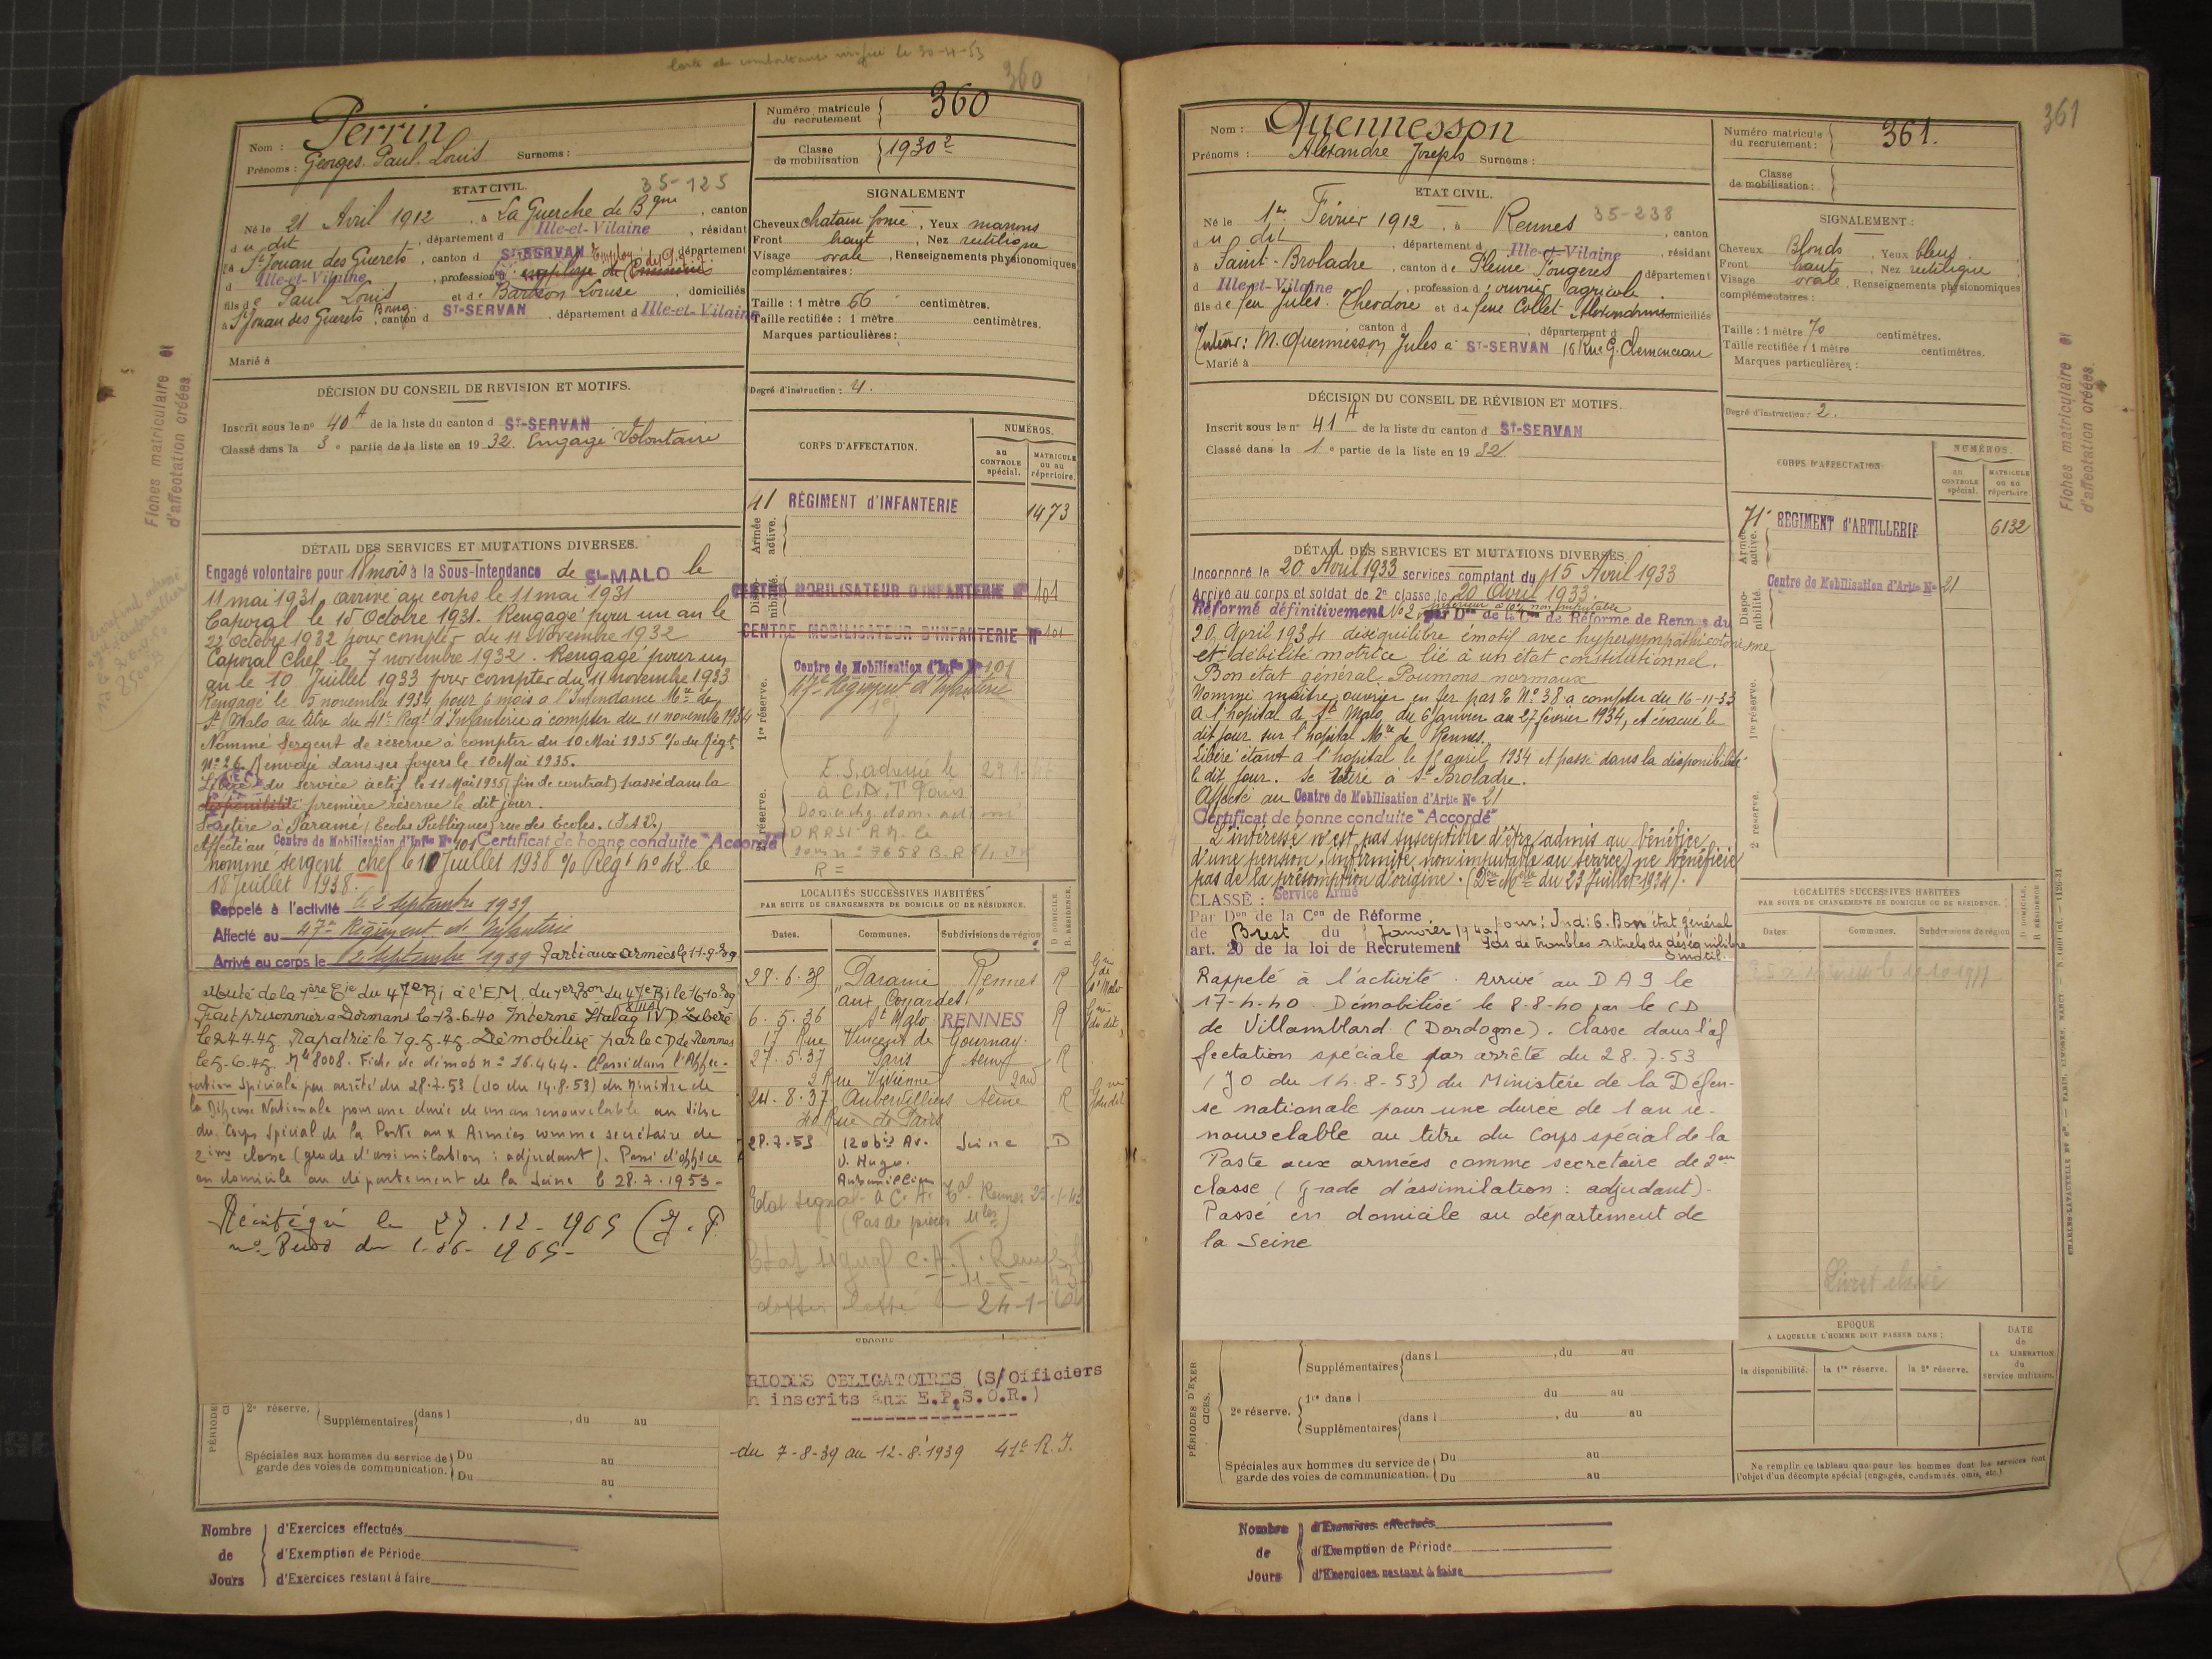 Carte du combattant le 30-4-53
360
Perrin
Nom :
Georges Paul Louis
Prénoms :
Surnoms :
Numéro matricule du recrutement
360
Classe de mobilisation
1930²
ETAT CIVIL.
35-125
Né le 21 Avril 1912, à La Guerche de Bgne, canton
du dit, département d Ille-et-Vilaine, résidant
à St Jouan des Guerets, canton d St-SERVAN, département
d Ille-et-Vilaine, profession d employé de
fils de Paul Louis et de Louise, domiciliés
à St Jouan des Guerets Bourg, canton d St-SERVAN, département d Ille-et-Vilaine
Marié à
SIGNALEMENT
Cheveux chatain foncé, Yeux marrons
Front haut, Nez rectiligne
Visage ovale, Renseignements physionomiques
complémentaires :
Taille : 1 mètre 66 centimètres.
Taille rectifiée : 1 mètre centimètres.
Marques particulières :
Degré d'instruction : 4.
DÉCISION DU CONSEIL DE REVISION ET MOTIFS.
Inscrit sous le n° 40 A de la liste du canton d St-SERVAN
Classé dans la 3e partie de la liste en 1932. Engagé Volontaire
CORPS D'AFFECTATION.
NUMÉROS.
au CONTROLE spécial.
MATRICULE ou au répertoire.
Armée active.
41 RÉGIMENT d'INFANTERIE 1473
Disponibilité.
CENTRE MOBILISATEUR D'INFANTERIE N° 101
CENTRE MOBILISATEUR D'INFANTERIE N° 101
1re réserve.
Centre de Mobilisation d'Infie N° 101
47e Régiment d'Infanterie
2e réserve.
E. S. adressé le 29.1.
Fiches matriculaire et
d'affectation créées
DÉTAIL DES SERVICES ET MUTATIONS DIVERSES.
Engagé volontaire pour 18 mois à la Sous-Intendance de St-MALO le
11 mai 1931, arrivé au corps le 11 mai 1931
Caporal le 15 Octobre 1931. Rengagé pour un an le
22 Octobre 1932 pour compter du 11 Novembre 1932
Caporal Chef le 7 novembre 1932. Rengagé pour un
an le 10 Juillet 1933 pour compter du 11 novembre 1933
Rengagé le 5 novembre 1934 pour 6 mois à l'Intendance Mre de
St Malo au titre du 41e Regt d'Infanterie à compter du 11 novembre 1934
Nommé Sergent de réserve à compter du 10 Mai 1935 % du Régt
N° 26. Renvoyé dans ses foyers le 10 Mai 1935.
Libéré du service actif le 11 Mai 1935 (fin de contrat) passé dans la
disponibilité première réserve le dit jour.
Se retire à Paramé (Ecoles Publiques) rue des Ecoles.
Affecté au Centre de Mobilisation d'Infie N° 101 Certificat de bonne conduite "Accordé"
nommé sergent chef le 10 Juillet 1938 % Regt n° 42 le
18 Juillet 1938.
Rappelé à l'activité le 2 septembre 1939
Affecté au 47e Régiment d'Infanterie
Arrivé au corps le 2 Septembre 1939 Parti aux armées le 11-9-39
Muté de la 1ère Cie du 47e RI à l'EM. du 1er Bon du 47e RI le 16-10-39
Fait prisonnier à Dormans le 13-6-40 Interné Stalag IV D Libéré
le 24.4.45. Rapatrié le 19-5-45. Démobilisé par le CD de Rennes
le 5-6-45. N° 8008. Fiche de démob n° 26.444. Classé dans l'Affec-
tation Spéciale par arrêté du 28.7.53 (JO du 14.8.53) du Ministre de
la Défense Nationale pour une durée de un an renouvelable au titre
du Corps Spécial de la Poste aux Armées comme secrétaire de
2ème classe (grade d'assimilation : adjudant). Passé d'office
en domicile au département de la Seine le 28.7.1953-
Réintégré le 27.12-1965
LOCALITÉS SUCCESSIVES HABITÉES
PAR SUITE DE CHANGEMENTS DE DOMICILE OU DE RÉSIDENCE.
D DOMICILE. R RÉSIDENCE.
Dates. Communes. Subdivisions de région
28.6.35 Paramé Rennes R
6.5.36 St Malo RENNES R
17 Rue Vincent de Gournay.
27.5.37 Paris Seine R
2 Rue Vivienne
24.8.37 Aubervilliers Seine R
40 Rue de Paris
28.7.53 120 bis Av. Seine D
V. Hugo.
Aubervilliers
(Pas de pièces Mles)
24-1-
RIODES OBLIGATOIRES (S/Officiers
n inscrits aux E.P.S.O.R.)
du 7-8-39 au 12-8-1939 41e R.I.
PÉRIODE
2e réserve. Supplémentaires dans l , du au
Spéciales aux hommes du service de garde des voies de communication. Du au
Du au
Nombre de Jours
d'Exercices effectués
d'Exemption de Période
d'Exercices restant à faire
361
Nom : Quennesson
Prénoms : Alexandre Joseph Surnoms :
Numéro matricule du recrutement : 361.
Classe de mobilisation :
ETAT CIVIL.
Né le 1er Février 1912, à Rennes 35-238, canton
du dit, département d Ille-et-Vilaine, résidant
à Saint-Broladre, canton de Pleine Fougères département
d Ille-et-Vilaine, profession d'ouvrier agricole
fils de feu Jules Théodore et de feue Collet Alexandrine domiciliés
canton d , département d
Tuteur : M. Quennesson Jules à St-SERVAN 16 Rue G. Clemenceau
Marié à
SIGNALEMENT :
Cheveux Blonds, Yeux bleus
Front haut, Nez rectiligne
Visage ovale, Renseignements physionomiques
complémentaires :
Taille : 1 mètre 70 centimètres.
Taille rectifiée : 1 mètre centimètres.
Marques particulières :
Degré d'instruction : 2.
DÉCISION DU CONSEIL DE RÉVISION ET MOTIFS.
Inscrit sous le n° 41 A de la liste du canton d St-SERVAN
Classé dans la 1e partie de la liste en 1932
CORPS D'AFFECTATION
NUMÉROS.
AU CONTROLE spécial.
MATRICULE ou au répertoire.
Armée active.
71e RÉGIMENT d'ARTILLERIE 6132
Disponibilité.
Centre de Mobilisation d'Artie N° 21
1re réserve.
2e réserve.
Fiches matriculaire et
d'affectation créées
DÉTAIL DES SERVICES ET MUTATIONS DIVERSES.
Incorporé le 20 Avril 1933 services comptant du 15 Avril 1933
Arrivé au corps et soldat de 2e classe le 20 Avril 1933.
Réformé définitivement N° 2, inférieur à 10% non imputable par Don de la Con de Réforme de Rennes du
20 April 1934 déséquilibre émotif avec hypersympathicotonisme
et débilité motrice lié à un état constitutionnel.
Bon état général. Poumons normaux
Nommé maître ouvrier en fer par % N° 38 a compter du 16-11-33
A l'hopital de St Malo du 6 janvier au 27 février 1934, et évacué le
dit jour sur l'hôpital Mre de Rennes.
Libéré étant à l'hopital le 15 april 1934 et passé dans la disponibilité
le dit jour. Se retire à St Broladre.
Affecté au Centre de Mobilisation d'Artie N° 21
Certificat de bonne conduite "Accordé"
L'intéressé n'est pas susceptible d'être admis au bénéfice
d'une pension (infirmité non imputable au service) ne bénéficie
pas de la présomption d'origine. (Don Mlle du 23 Juillet 1934).
CLASSÉ : Service Armé
Par Don de la Con de Réforme
de Brest du Janvier 1940 pour : Ind : 6. Bon état général
art. 20 de la loi de Recrutement Pas de troubles actuels de déséquilibre
émotif.
Rappelé à l'activité. Arrivé au D A 9 le
17-4-40. Démobilisé le 8-8-40 par le CD
de Villamblard (Dordogne). Classe dans l'af
fectation spéciale par arrêté du 28.7.53
(JO du 14.8-53) du Ministère de la Défen-
se nationale pour une durée de 1 an re-
nouvelable au titre du Corps spécial de la
Poste aux armées comme secretaire de 2eme
classe (grade d'assimilation : adjudant)-
Passé en domicile au département de
la Seine
LOCALITÉS SUCCESSIVES HABITÉES
PAR SUITE DE CHANGEMENTS DE DOMICILE OU DE RÉSIDENCE.
D DOMICILE. R RÉSIDENCE
Dates Communes. Subdivisions de région
Livret classé
PÉRIODES D'EXERCICES.
Supplémentaires dans l , du au
2e réserve. 1re dans l du au
Supplémentaires dans l , du au
Spéciales aux hommes du service de garde des voies de communication. Du au
Du au
EPOQUE
A LAQUELLE L'HOMME DOIT PASSER DANS :
la disponibilité. la 1re réserve. la 2e réserve.
DATE de LA LIBÉRATION du service militaire.
Ne remplir ce tableau que pour les hommes dont les services font
l'objet d'un décompte spécial (engagés, condamnés, omis, etc.)
Nombre de Jours
d'Exercices effectués
d'Exemption de Période
d'Exercices restant à faire